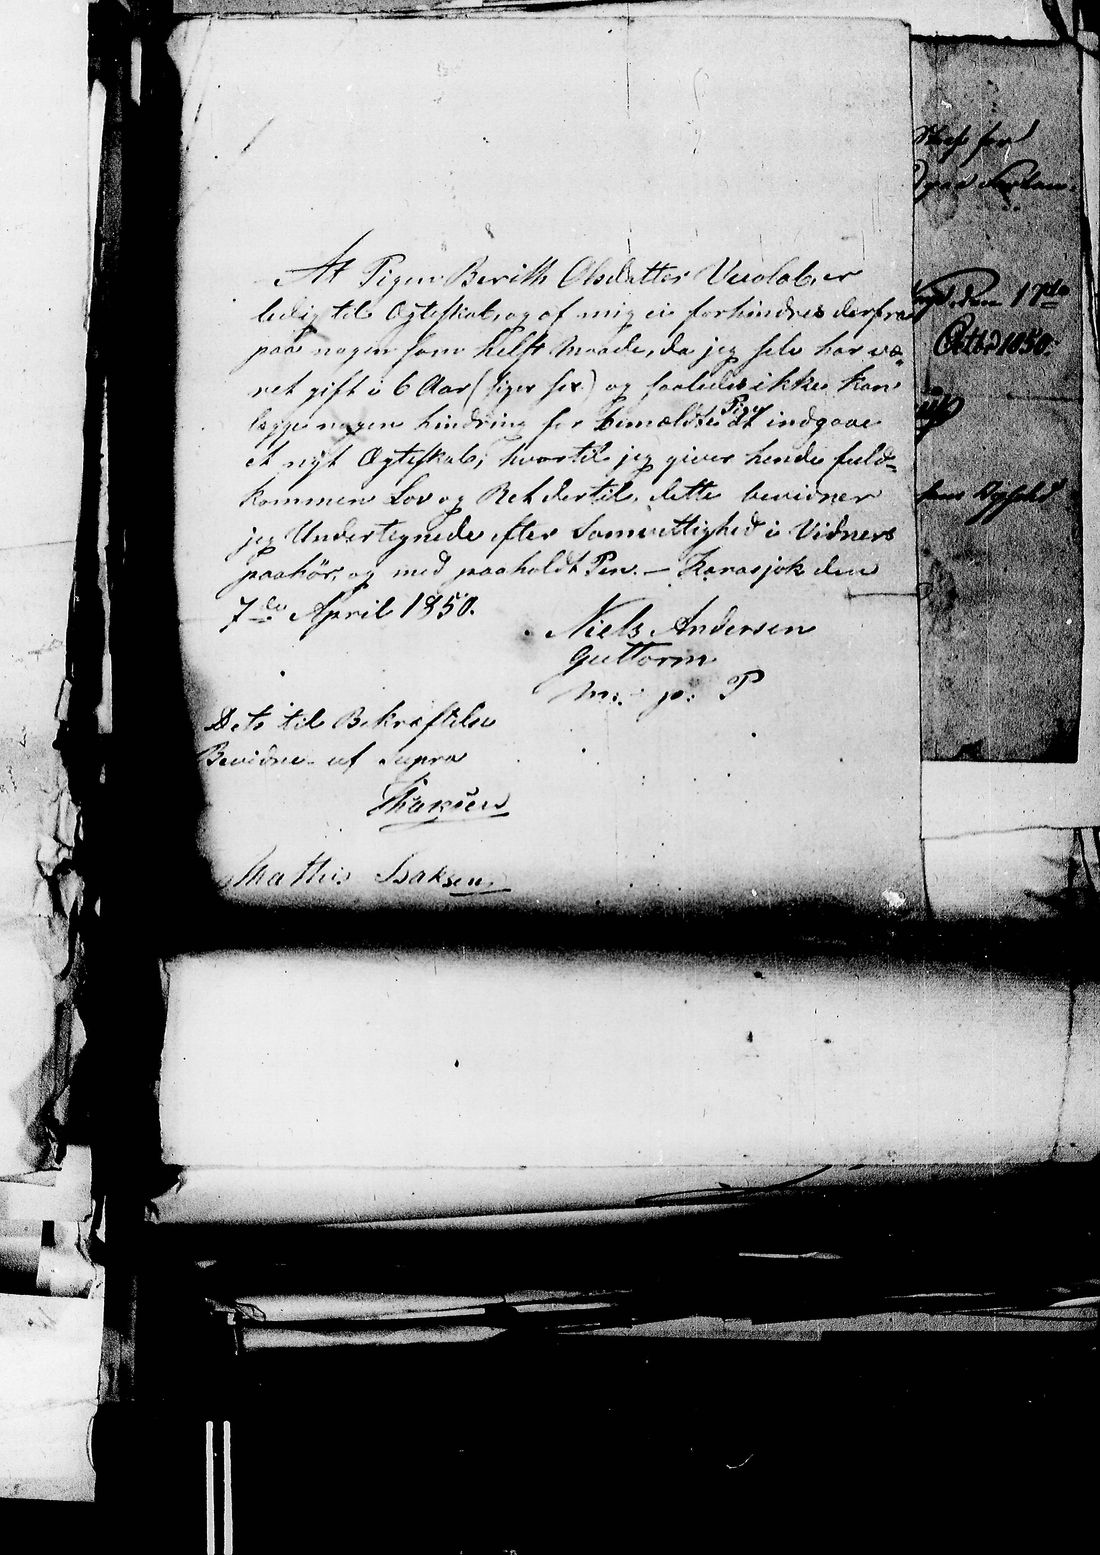 At Pigen Berith Olsdatter Vuolab, er
ledig til Ægteskab, og af mig ei forhindres derfra
paa nogen som helst Maade, da jeg selv har væ-
ret gift i 6 Aar (siger sex) og saaledes ikke kan
lægge nogen hindring for bemældte Pige at indgaae
et nyt Ægteskab; hvortil jeg giver hende fuld-
kommen Lov og Ret dertil, dette bevidner
jeg Undertegnede efter Samvittighed i Vidners
paahør, og med paaholdt Pen. — Karasjok den
7de April 1850.
Niels Andersen
Guttorm
m. p. P
Dets til Bekræftelse
Bevidne af Supra
Mathis Isaksen
den 17de
Octbr 1850.